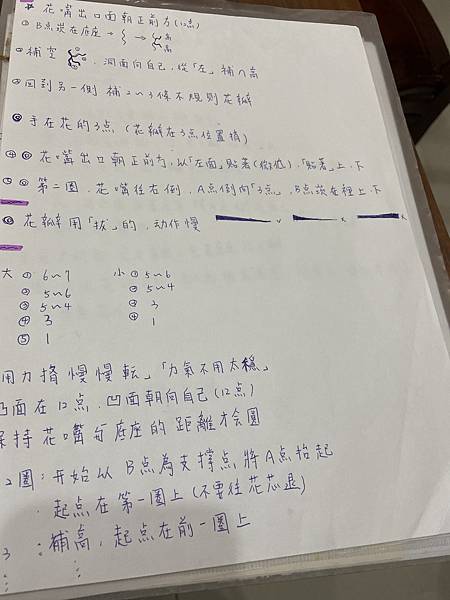 * 花嘴出口面朝正前方(12点)
② B点崁在底座→ → 高 高
② 補空 . 洞面向自己, 從「左」補∩高
③ 回到另一側 補2~3條不規則花瓣
手在花的3点 (花瓣在3点位置擠)
④ 花嘴出口朝正前方,以「左面」貼著,「貼著」上.下
⑤ 第二圈. 花嘴往右倒. A点倒向「3点」, B点崁在裡上.下
⑥ 花瓣用「拔」的, 动作慢 v x x
大 ① 6~7 小 ① 5~6
② 5~6 ② 5~4
③ 5~4 ③ 3
④ 3 ④ 1
⑤ 1
用力擠 慢慢転」「力氣不用太穩」
凸面在12点. 凹面朝向自己(12点)
保持花嘴每底座的距離才会圓
2圈:开始以 B点為支撐点 將A点抬起
. 起点在第一圈上(不要往花芯退)
3 : 補高, 起点在前一圈上